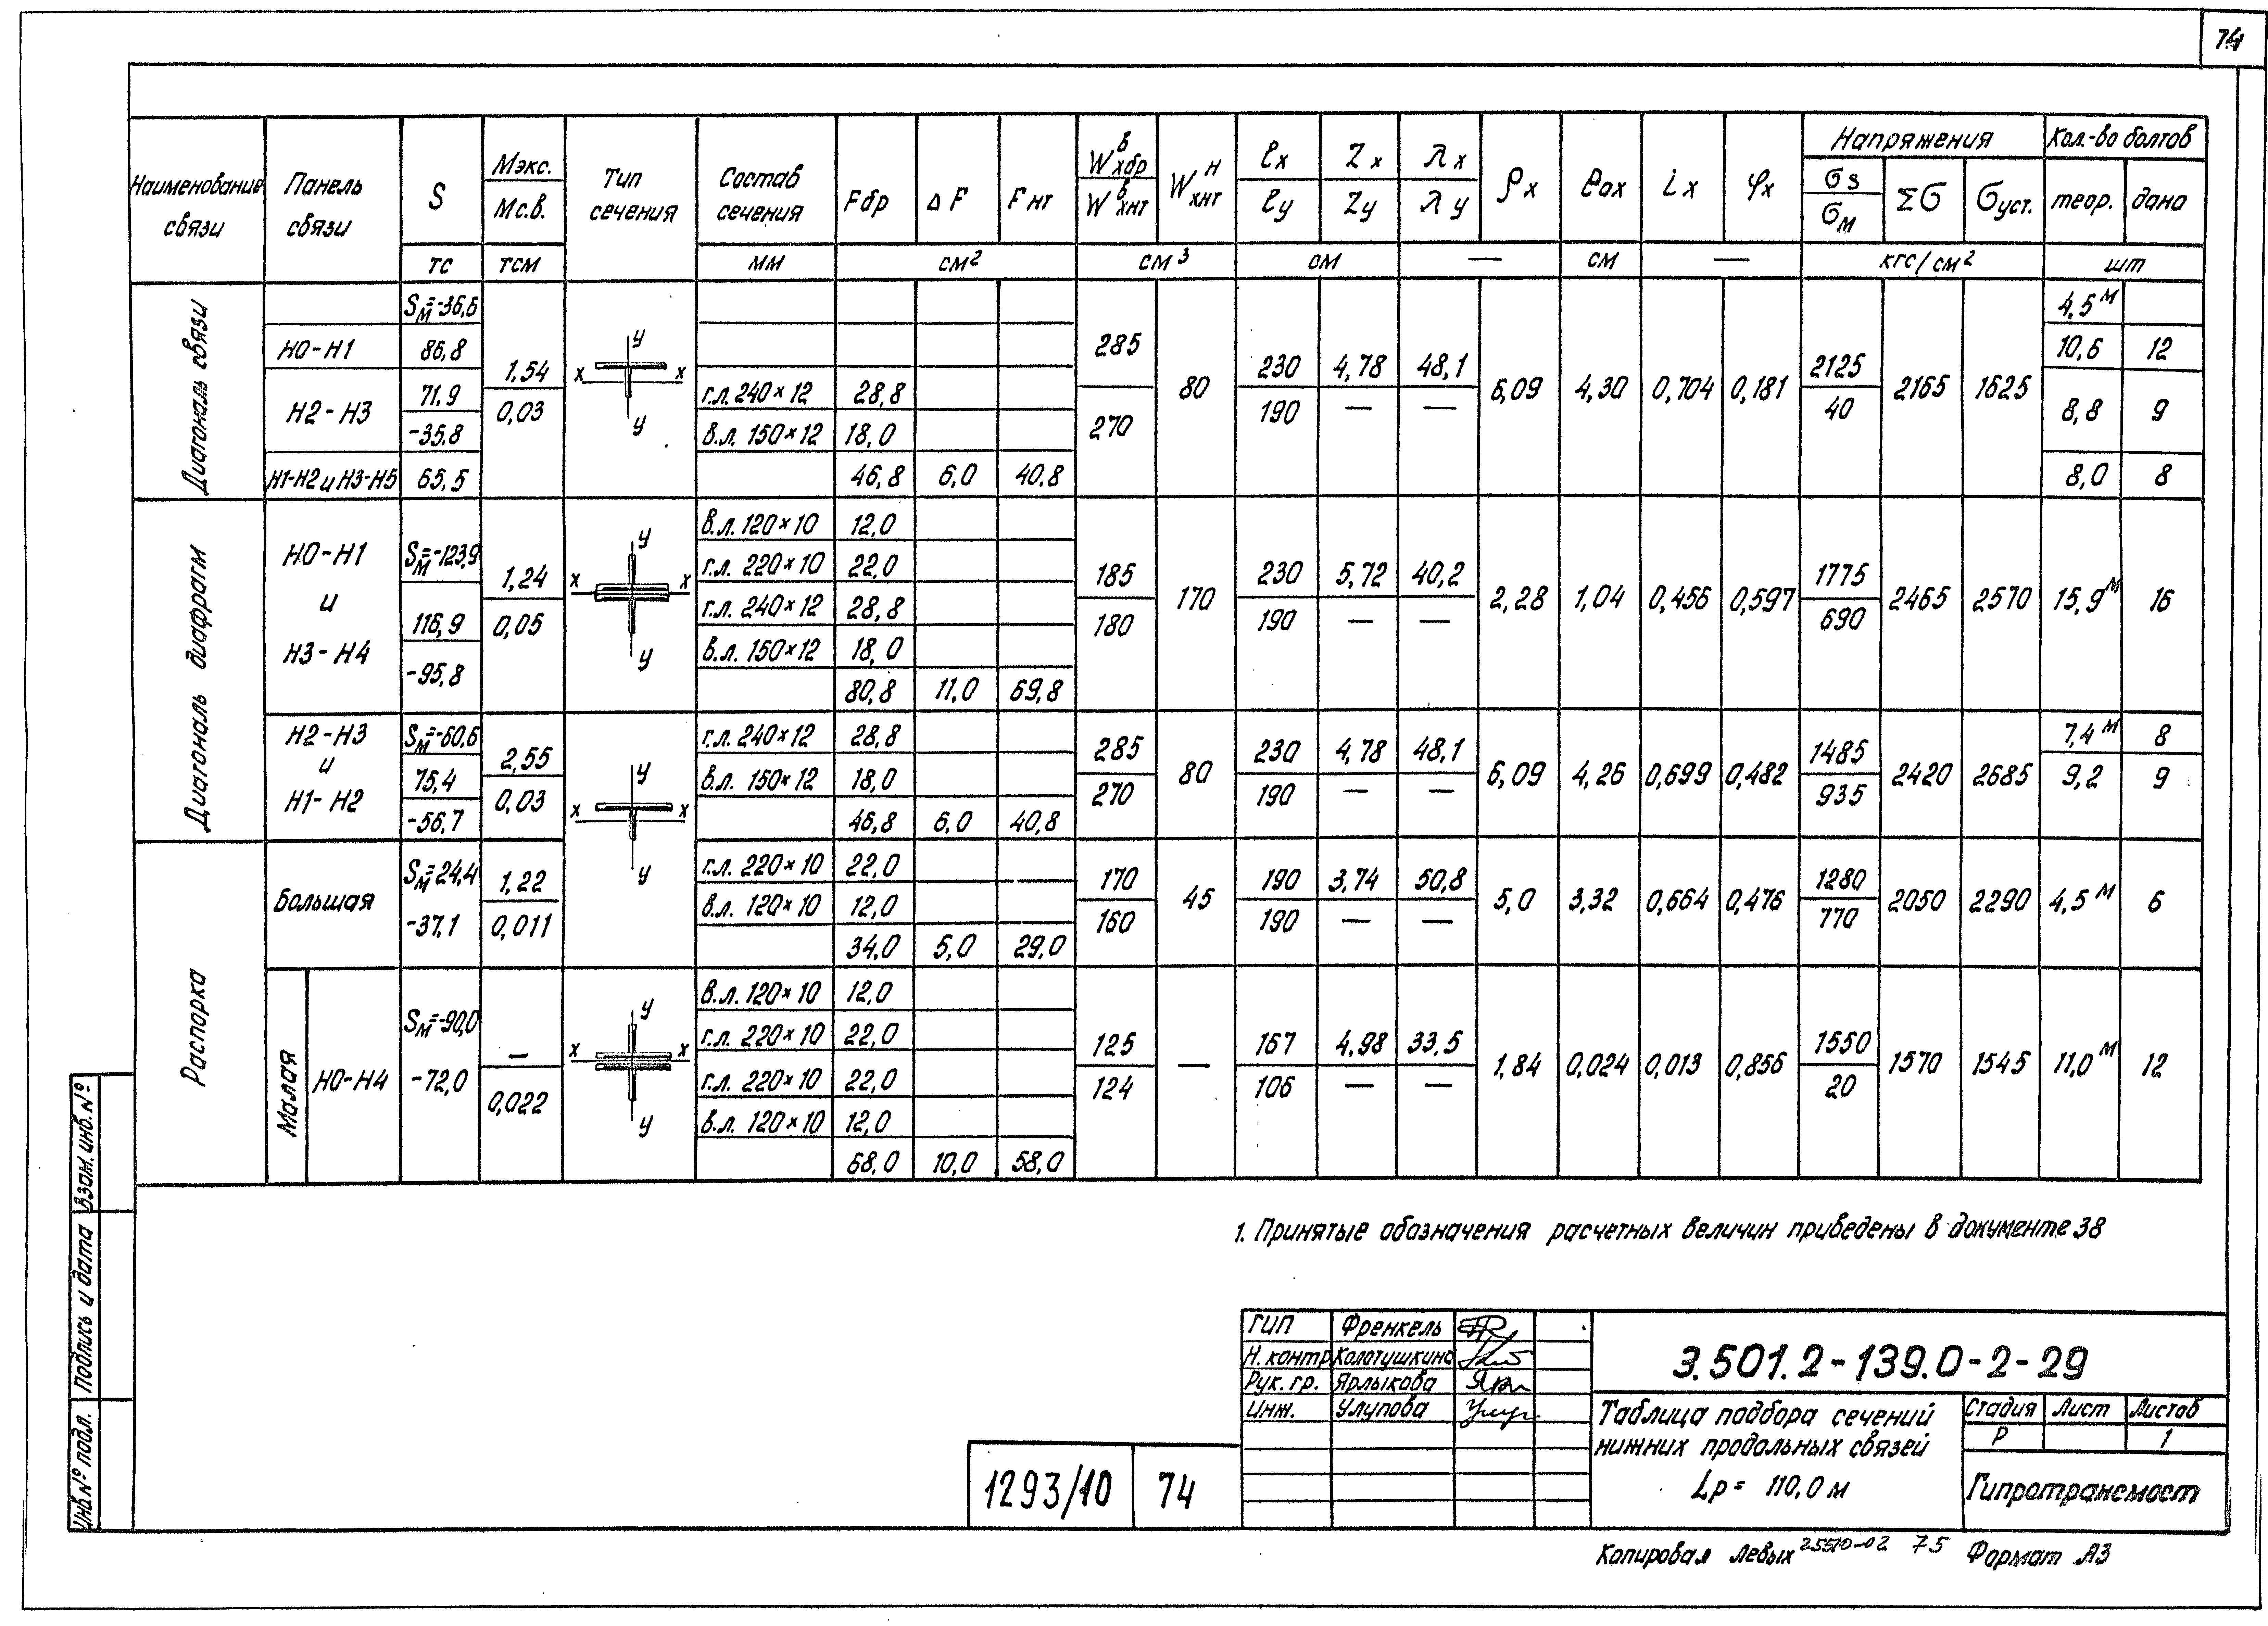 74
Наименование связи
Панель связи
S
Мэкс.
Мс.в.
Тип сечения
Состав сечения
Fбр
ΔF
Fнт
Wхбр^в
Wхнт^в
Wхнт^н
ℓx
ℓy
Zx
Zy
λx
λy
ρx
eox
ix
φx
Напряжения
σз
σм
Σσ
σуст.
Кол-во болтов
теор.
дано
тс
тсм
мм
см²
см³
см
—
см
—
кгс/см²
шт
Диагональ связи
Sм=-36,6
4,5 м
Н0-Н1
86,8
10,6
12
Н2-Н3
71,9
-35,8
8,8
9
Н1-Н2 и Н3-Н5
65,5
8,0
8
1,54
0,03
y
x x
y
г.л. 240×12 28,8
в.л. 150×12 18,0
46,8 6,0 40,8
285
270
80
230
190
4,78
—
48,1
—
6,09
4,30
0,704
0,181
2125
40
2165
1625
Диагональ диафрагм
Н0-Н1
и
Н3-Н4
Sм=-123,9
116,9
-95,8
1,24
0,05
y
x x
y
в.л. 120×10 12,0
г.л. 220×10 22,0
г.л. 240×12 28,8
в.л. 150×12 18,0
80,8 11,0 69,8
185
180
170
230
190
5,72
—
40,2
—
2,28
1,04
0,456
0,597
1775
690
2465
2570
15,9 м
16
Н2-Н3
и
Н1-Н2
Sм=-60,6
75,4
-56,7
2,55
0,03
y
x x
y
г.л. 240×12 28,8
в.л. 150×12 18,0
46,8 6,0 40,8
285
270
80
230
190
4,78
—
48,1
—
6,09
4,26
0,699
0,482
1485
935
2420
2685
7,4 м 8
9,2 9
Распорка
Большая
Sм=24,4
-37,1
1,22
0,011
г.л. 220×10 22,0
в.л. 120×10 12,0
34,0 5,0 29,0
170
160
45
190
190
3,74
—
50,8
—
5,0
3,32
0,664
0,476
1280
770
2050
2290
4,5 м
6
Малая
Н0-Н4
Sм=-90,0
-72,0
—
0,022
y
x x
y
в.л. 120×10 12,0
г.л. 220×10 22,0
г.л. 220×10 22,0
в.л. 120×10 12,0
68,0 10,0 58,0
125
124
—
167
106
4,98
—
33,5
—
1,84
0,024
0,013
0,856
1550
20
1570
1545
11,0 м
12
1. Принятые обозначения расчетных величин приведены в документе 38
Взам. инв. №
Подпись и дата
Инв № подл.
1293/10 74
ГИП Френкель
Н. контр Колотушкина
Рук. гр. Ярлыкова
Инж. Улупова
3.501.2-139.0-2-29
Таблица подбора сечений
нижних продольных связей
Lр = 110,0 м
Стадия Лист Листов
Р 1
Гипротрансмост
Копировал Левых 25570-02 75 Формат А3